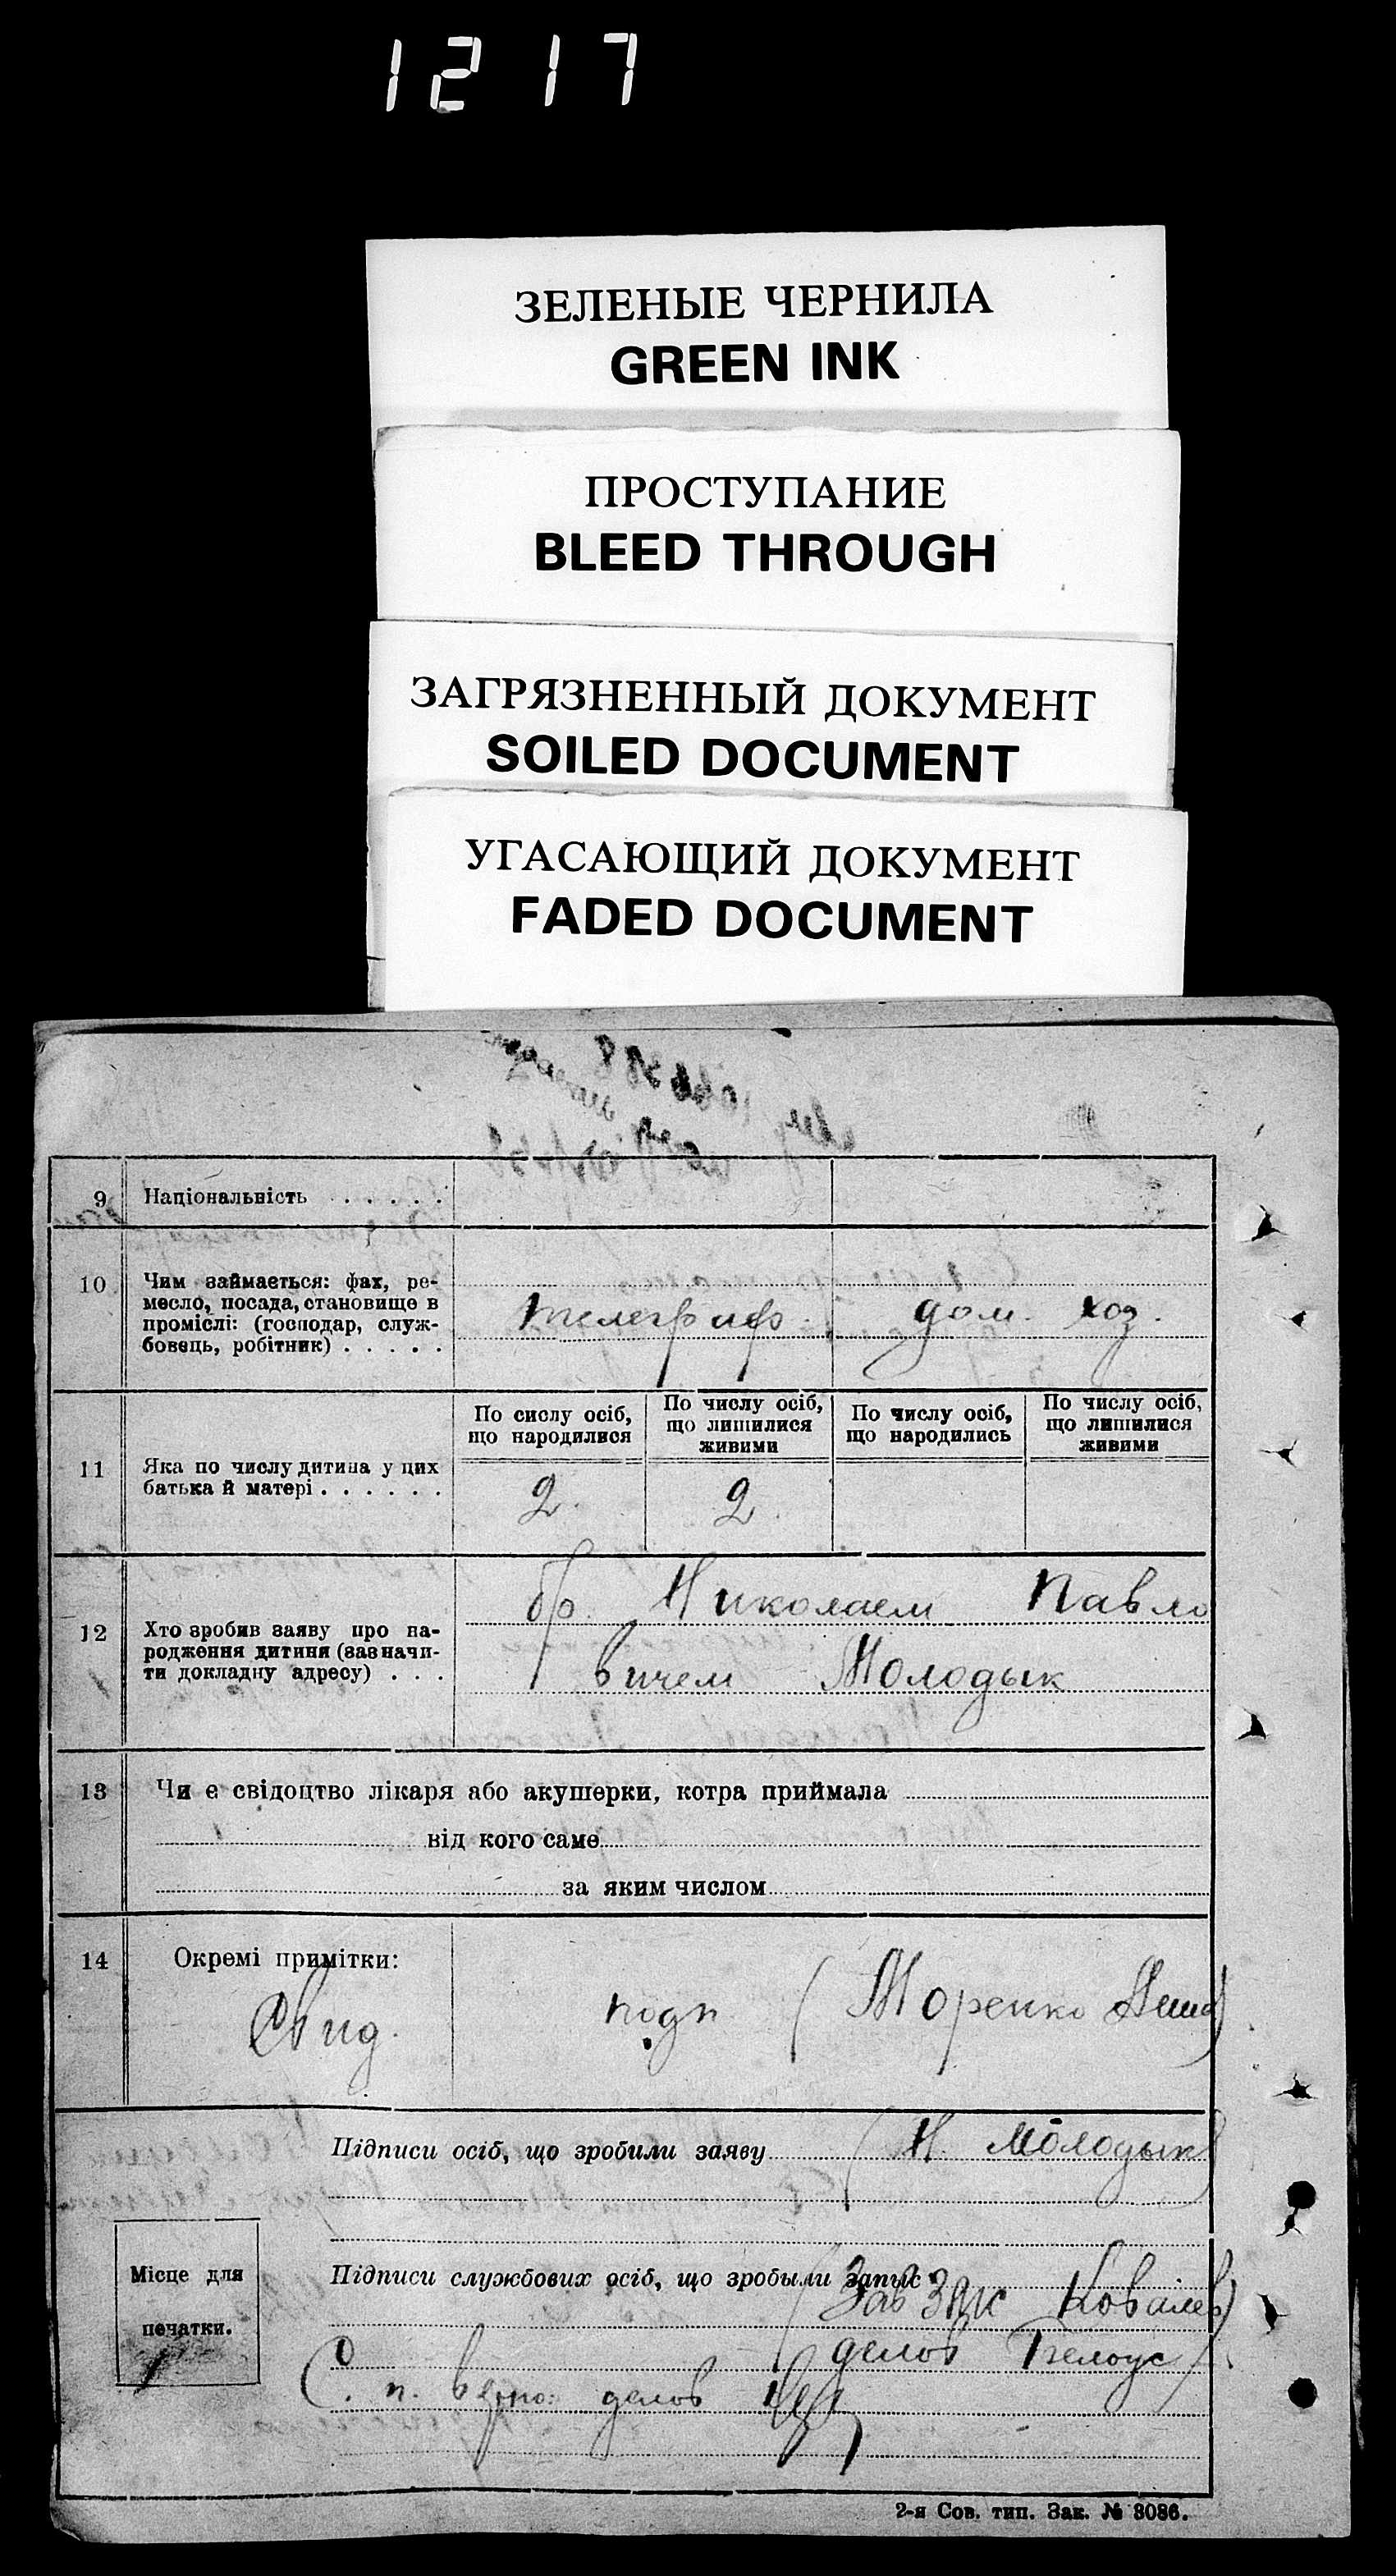 1217
ЗЕЛЕНЫЕ ЧЕРНИЛА
GREEN INK
ПРОСТУПАНИЕ
BLEED THROUGH
ЗАГРЯЗНЕННЫЙ ДОКУМЕНТ
SOILED DOCUMENT
УГАСАЮЩИЙ ДОКУМЕНТ
FADED DOCUMENT
9 Національність . . . . .
10 Чим займається: фах, ре-
месло, посада, становище в
проміслі: (господар, служ-
бовець, робітник) . . . . .
телеграф. дом. хоз.
11 Яка по числу дитина у цих
батька й матері . . . . . .
По сислу осіб,
що народилися
По числу осіб,
що лишилися
живими
По числу осіб,
що народились
По числу осіб,
що лишилися
живими
2. 2
12 Хто зробив заяву про на-
родження дитини (зазначи-
ти докладну адресу) . . .
Николаем Павло
вичем Молодык
13 Чи є свідоцтво лікаря або акушерки, котра приймала
від кого саме
за яким числом
14 Окремі примітки:
Свид. подп (Моренко
Підписи осіб, що зробили заяву (Н. Молодык)
Підписи службових осіб, що зробыли запыс
(Зав Загс Ковалев)
делов Белоус)
С. п. верно: делов
Місце для
печатки.
2-я Сов. тип. Зак. № 3086.